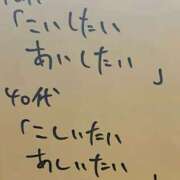 「こいしたい
あいしたい
」
40代
「こしいたい
あしいたい
」